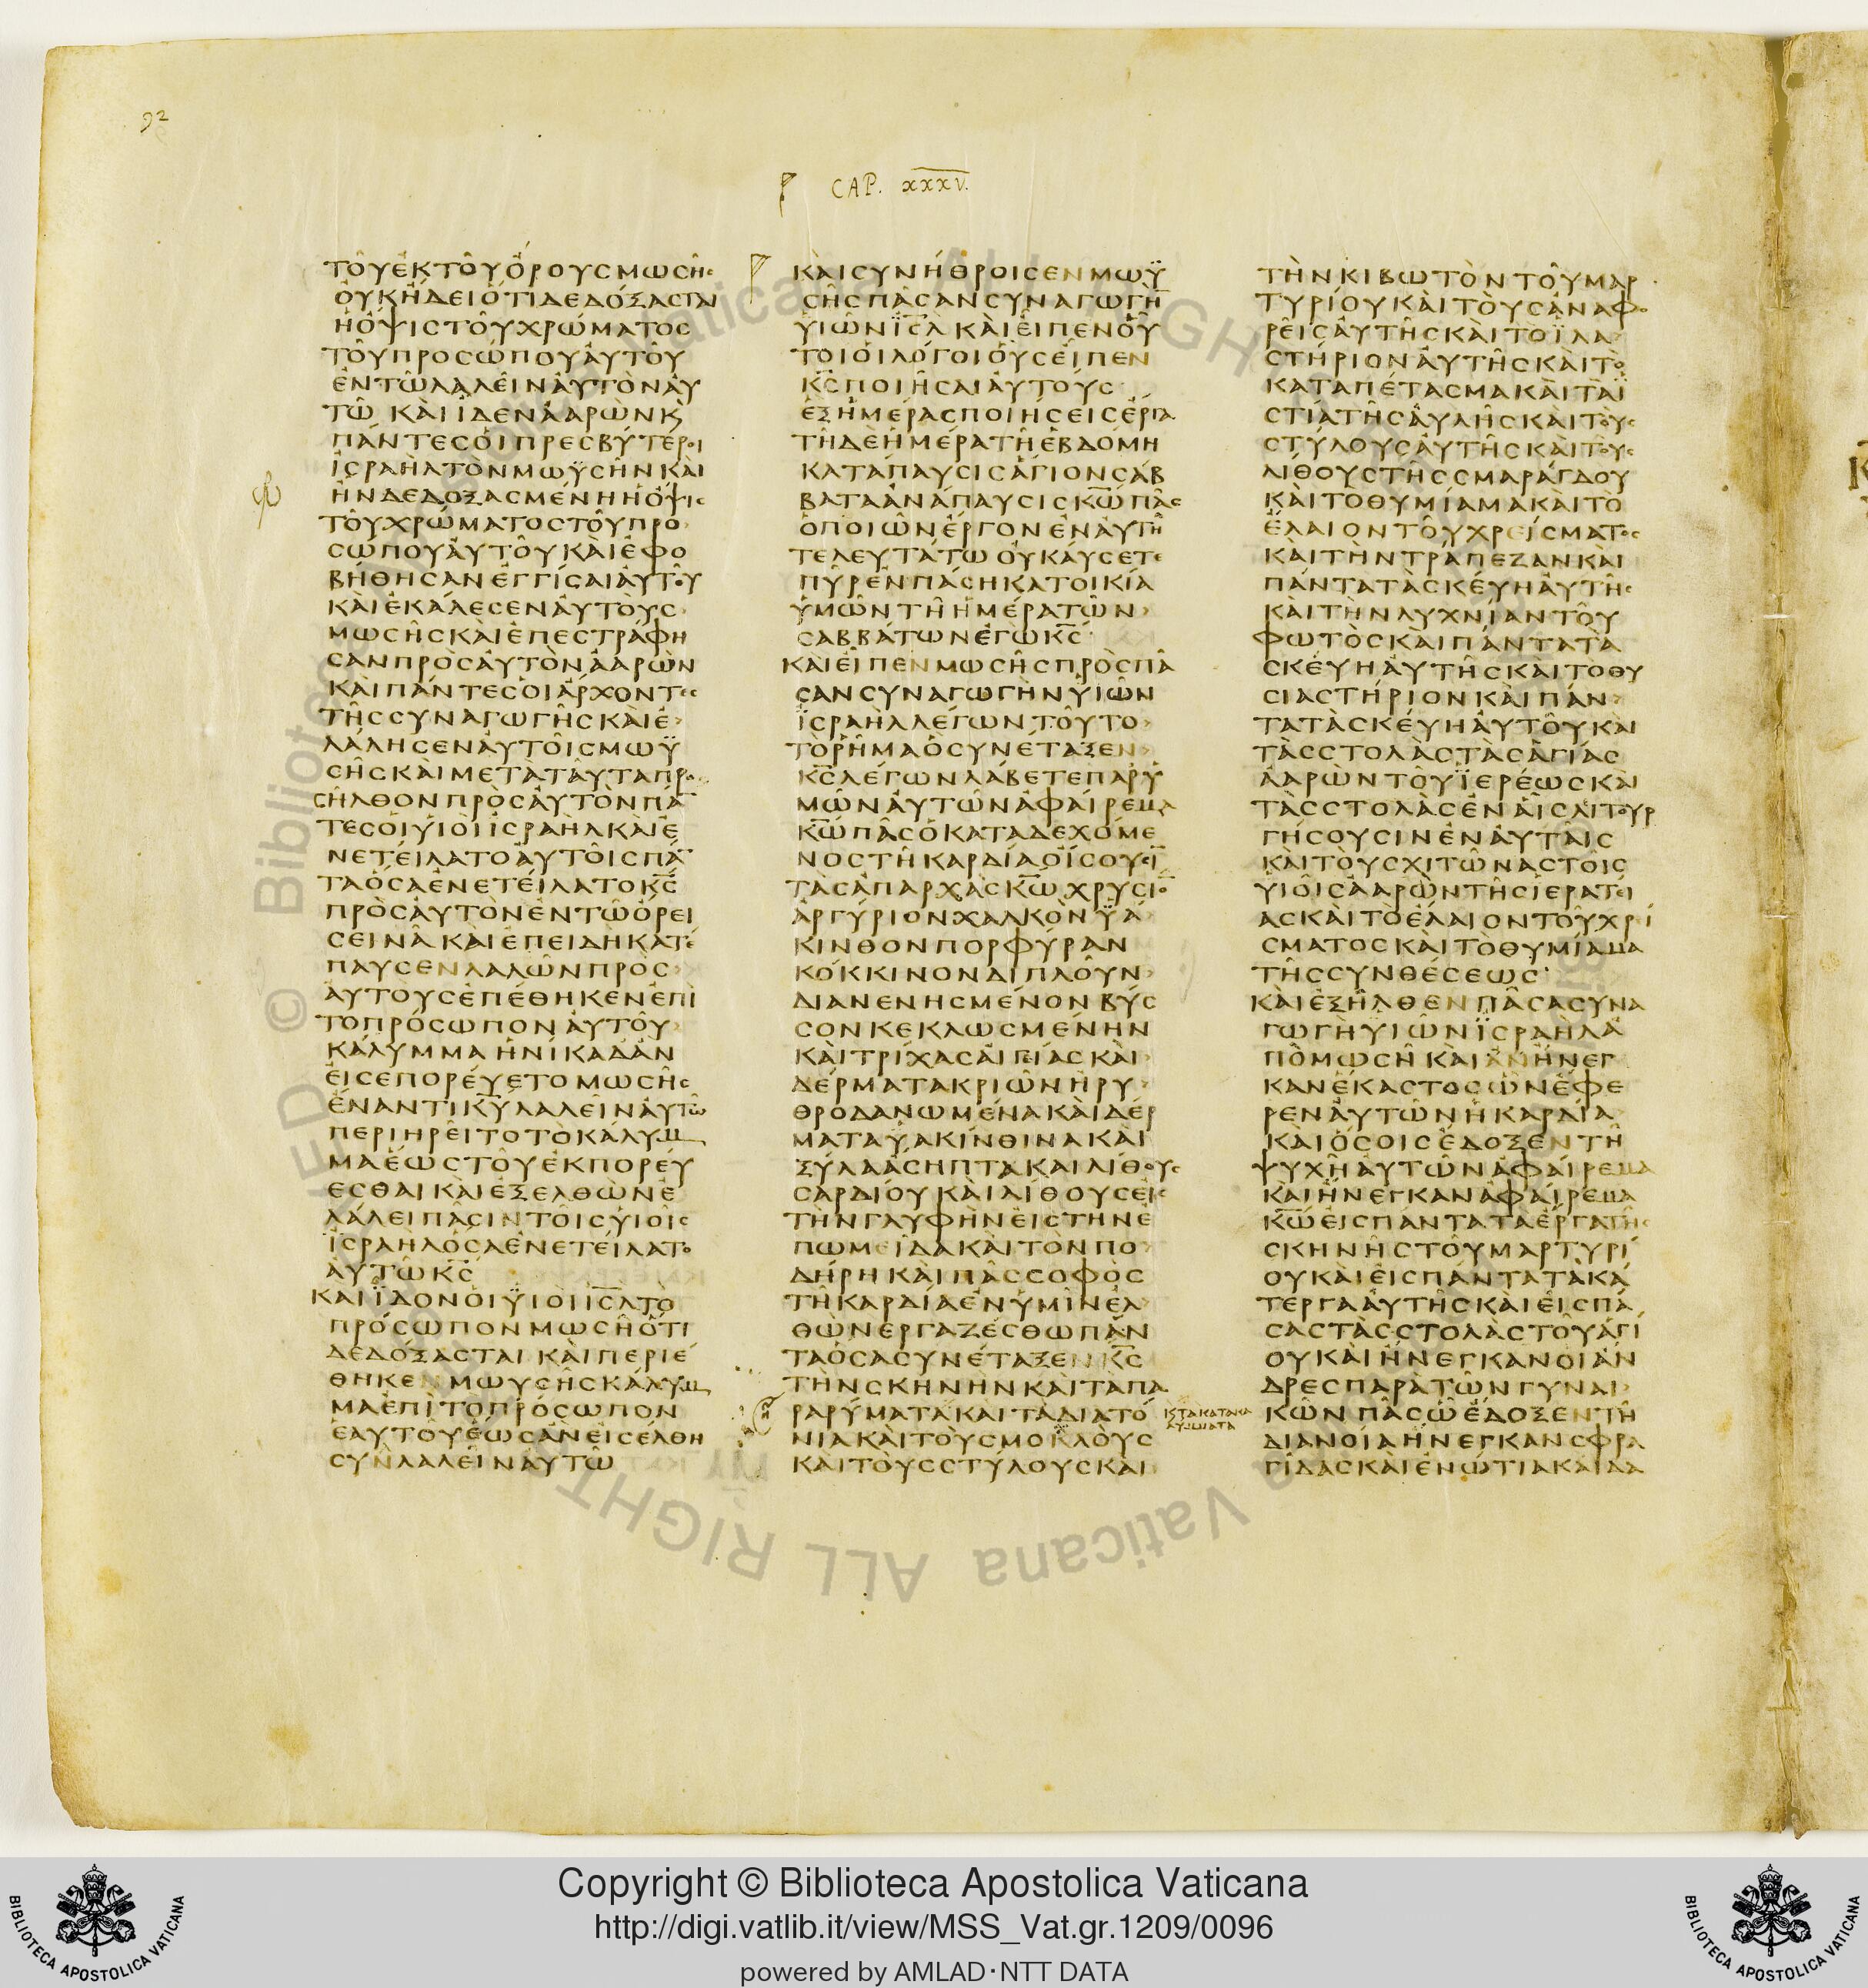 92
CAP. XXXV.
ΤΟῦἘΚΤΟῦὌΡΟΥϹΜΩϹΗ͂Ϲ
ΟΥ̓ΚΗΔΕΙὍΤΙΔΕΔΌΞΑϹΤΑΙ
ἩὌΨΙϹΤΟῦΧΡΏΜΑΤΟϹ
ΤΟῦΠΡΟϹΏΠΟΥΑΥ̓ΤΟῦ
ἘΝΤΩ͂ΛΑΛΕΙ͂ΝΑΥ̓ΤῸΝΑΥ̓
ΤΩ͂ ΚΑῚΙΔΕΝἈΑΡῺΝΚ̀
ΠΆΝΤΕϹΟἹΠΡΕϹΒΎΤΕΡΟΙ
ἸϹΡΑῊΛΤῸΝΜΩΫϹΗ͂ΝΚΑῚ
ἮΝΔΕΔΟΞΑϹΜΈΝΗἩὌΨΙϹ
ΤΟῦΧΡΏΜΑΤΟϹΤΟῦΠΡΟ
ϹΏΠΟΥΑΥ̓ΤΟῦΚΑῚἘΦΟ
ΒΉΘΗϹΑΝἘΓΓΊϹΑΙΑΥ̓ΤΟῦ
ΚΑῚἘΚΆΛΕϹΕΝΑΥ̓ΤΟῪϹ
ΜΩϹΗ͂ϹΚΑῚἘΠΕϹΤΡΆΦΗ
ϹΑΝΠΡῸϹΑΥ̓ΤῸΝἈΑΡῺΝ
ΚΑῚΠΆΝΤΕϹΟἹἌΡΧΟΝΤΕϹ
ΤΗ͂ϹϹΥΝΑΓΩΓΗ͂ϹΚΑῚἘ
ΛΆΛΗϹΕΝΑΥ̓ΤΟΙ͂ϹΜΩΫ
ϹΗ͂ϹΚΑῚΜΕΤᾺΤΑῦΤΑΠΡΟ
ϹΗ͂ΛΘΟΝΠΡῸϹΑΥ̓ΤῸΝΠΆ̅
ΤΕϹΟἹΥἹΟῚἸϹΡΑῊΛΚΑῚἘ
ΝΕΤΕΊΛΑΤΟΑΥ̓ΤΟΙ͂ϹΠΆ̅
ΤΑὍϹΑἘΝΕΤΕΊΛΑΤΟΚ̅Ϲ̅
ΠΡῸϹΑΥ̓ΤῸΝἘΝΤΩ͂ὌΡΕΙ
ϹΕΙΝΑ͂ ΚΑῚἘΠΕΙΔῊΚΑΤΈ
ΠΑΥϹΕΝΛΑΛΩ͂ΝΠΡῸϹ
ΑΥ̓ΤΟΥϹἘΠΈΘΗΚΕΝἘΠῚ
ΤΟΠΡΌϹΩΠΟΝΑΥ̓ΤΟῦ
ΚΆΛΥΜΜΑ ἩΝΊΚΑΔΑΝ
ΕἸϹΕΠΟΡΕΎΕΤΟΜΩϹΗ͂Ϲ
ἜΝΑΝΤΙΚ̅Υ̅ΛΑΛΕΙ͂ΝΑΥ̓ΤΩ͂
ΠΕΡΙΗΡΕΙ͂ΤΟΤῸΚΆΛΥΜ
ΜΑἝΩϹΤΟῦἘΚΠΟΡΕΎ
ΕϹΘΑΙΚΑῚἘΞΕΛΘῺΝἘ
ΛΆΛΕΙΠΑ͂ϹΙΝΤΟΙ͂ϹΥἹΟΙ͂Ϲ
ἸϹΡΑΗΛὍϹΑἘΝΕΤΕΊΛΑΤΟ
ΑΥ̓ΤΩΚ̅Ϲ̅
ΚΑΙΪΔΟΝΟἹΫΙΟῚΙ̅Ϲ̅Λ̅ΤῸ
ΠΡΌϹΩΠΟΝΜΩϹΗ͂ὍΤΙ
ΔΕΔΌΞΑϹΤΑΙ ΚΑῚΠΕΡΙΈ
ΘΗΚΕΝΜΩΥϹΗ͂ϹΚΆΛΥΜ
ΜΑἘΠῚΤΟΠΡΌϹΩΠΟΝ
ἙΑΥΤΟῦἝΩϹἊΝΕἸϹΈΛΘΗ
ϹΥΝΛΑΛΕΙ͂ΝΑΥ̓ΤΩ͂
ΚΑῚϹΥΝΉΘΡΟΙϹΕΝΜΩΫ
ϹΗ͂ϹΠΑ͂ϹΑΝϹΥΝΑΓΩΓῊ̅
ΥἹΩ͂ΝΙ̅Ϲ̅Λ̅ΚΑῚΕἸΠΕΝΟΥ͂
ΤΟΙΟἹΛΌΓΟΙΟὛϹΕἸΠΕΝ
Κ̅Ϲ̅ΠΟΙΗ͂ϹΑΙΑΥ̓ΤΟΎϹ
ἝΞἩΜΈΡΑϹΠΟΙΉϹΕΙϹἜΡΓΑ
ΤΗ͂ΔῈἩΜΈΡΑΤΗ͂ΕΒΔΟΜΗ
ΚΑΤΆΠΑΥϹΙϹἍΓΙΟΝϹΆΒ
ΒΑΤΑἈΝΆΠΑΥϹΙϹΚ̅Ω̅ΠΑ͂Ϲ
ὉΠΟΙΩ͂ΝἜΡΓΟΝἘΝΑΥ̓ΤΗ͂
ΤΕΛΕΥΤΆΤΩ ΟΥ̓ΚΑΎϹΕΤΕ
ΠῦΡἘΝΠΆϹΗΚΑΤΟΙΚΊΑ
ὙΜΩ͂ΝΤΗ͂ἩΜΈΡΑΤΩ͂Ν
ϹΑΒΒΆΤΩΝἘΓΩΚ̅Ϲ̅
ΚΑΙΕἸΠΕΝΜΩϹΗ͂ϹΠΡῸϹΠΑ͂
ϹΑΝϹΥΝΑΓΩΓῊΝΥἹΩ͂Ν
ΪϹΡΑῊΛΛΈΓΩΝΤΟῦΤΟ
ΤῸΡΗ͂ΜΑὍϹΥΝΈΤΑΞΕΝ
Κ̅Ϲ̅ΛΈΓΩΝΛΆΒΕΤΕΠΑΡΎ
ΜΩ͂ΝΑΥ̓ΤΩ͂ΝἈΦΑΊΡΕΜΑ
Κ̅Ω̅ΠΑ͂ϹὉΚΑΤΑΔΕΧΌΜΕ
ΝΟϹΤΗ͂ΚΑΡΔΊΑΟἼϹΟΥϹΙ̅
ΤᾺϹἈΠΑΡΧᾺϹΚ̅Ω̅ ΧΡΥϹΊΟ̅
ἈΡΓΎΡΙΟΝΧΑΛΚῸΝΫΆ
ΚΙΝΘΟΝΠΟΡΦΎΡΑΝ
ΚΌΚΚΙΝΟΝΔΙΠΛΟῦΝ
ΔΙΑΝΕΝΗϹΜΈΝΟΝΒΎϹ
ϹΟΝΚΕΚΛΩϹΜΈΝΗΝ
ΚΑῚΤΡΊΧΑϹΑἸΓΕΊΑϹΚΑῚ
ΔΈΡΜΑΤΑΚΡΙΩ͂ΝἨΡΥ
ΘΡΟΔΑΝΩΜΈΝΑΚΑῚΔΈΡ
ΜΑΤΑΫΑΚΊΝΘΙΝΑΚΑῚ
ΞΎΛΑἌϹΗΠΤΑΚΑΙΛΊΘΟΥϹ
ϹΑΡΔΊΟΥΚΑῚΛΊΘΟΥϹΕἸϹ
ΤῊΝΓΛΥΦῊΝΕἸϹΤΗΝἘ
ΠΩΜΕΊΔΑΚΑῚΤῸΝΠΟ
ΔΉΡΗ ΚΑῚΠΑ͂ϹϹΟΦῸϹ
ΤΗ͂ΚΑΡΔΊΑἘΝὙΜΙ͂ΝἘΛ
ΘῺΝΕΡΓΑΖΈϹΘΩΠΆΝ
ΤΑὍϹΑϹΥΝΈΤΑΞΕΝΚ̅Ϲ̅
ΤῊΝϹΚΗΝῊΝΚΑῚΤᾺΠΑ
ΡΑΡΎΜΑΤΑΚΑῚΤᾺΔΙΑΤΌ
ΝΙΑΚΑῚΤΟῪϹΜΟΧΛΟῪϹ
ΚΑΙΤΟῪϹϹΤΎΛΟΥϹΚΑῚ
ΚΣΤΑΚΑΤΑΚΑ
ΛΥΜΜΑΤΑ
ΤῊΝΚΙΒΩΤῸΝΤΟῦΜΑΡ
ΤΥΡΊΟΥΚΑῚΤΟῪϹἈΝΑΦΟ
ΡΕΙ͂ϹΑΥ̓ΤΗ͂ϹΚΑῚΤΟΪΛΑ
ϹΤΉΡΙΟΝΑΥ̓ΤΗ͂ϹΚΑῚΤῸ
ΚΑΤΑΠΈΤΑϹΜΑΚΑῚΤΑΪ
ϹΤΊΑΤΗ͂ϹΑΥ̓ΛΗ͂ϹΚΑῚΤΟῪϹ
ϹΤΎΛΟΥϹΑΥ̓ΤΗ͂ϹΚΑῚΤΟῪϹ
ΛΊΘΟΥϹΤΗ͂ϹϹΜΑΡΆΓΔΟΥ
ΚΑῚΤΟΘΥΜΊΑΜΑΚΑῚΤΟ
ἜΛΑΙΟΝΤΟῦΧΡΕΊϹΜΑΤΟϹ
ΚΑΙΤῊΝΤΡΆΠΕΖΑΝΚΑῚ
ΠΆΝΤΑΤᾺϹΚΕΎΗΑΥ̓ΤΗ͂Ϲ
ΚΑΙΤῊΝΛΥΧΝΊΑΝΤΟῦ
ΦΩΤῸϹΚΑΙΠΆΝΤΑΤᾺ
ϹΚΕΎΗΑΥ̓ΤΗ͂ϹΚΑΙΤΟΘΥ
ϹΙΑϹΤΉΡΙΟΝΚΑῚΠΆΝ
ΤΑΤᾺϹΚΕΎΗΑΥ̓ΤΟῦΚΑῚ
ΤᾺϹϹΤΟΛᾺϹΤᾺϹἉΓΊΑϹ
ἈΑΡῺΝΤΟῦΪΕΡΈΩϹΚΑῚ
ΤᾺϹϹΤΟΛᾺϹἘΝΑἿϹΛΙΤΟΥΡ
ΓΉϹΟΥϹΙΝἘΝΑΥ̓ΤΑΙ͂Ϲ
ΚΑῚΤΟῪϹΧΙΤΩ͂ΝΑϹΤΟΙ͂Ϲ
ΥἹΟΙ͂ϹἈΑΡῺΝΤΗ͂ϹἹΕΡΑΤΕΊ
ΑϹΚΑῚΤΟἜΛΑΙΟΝΤΟῦΧΡΊ
ϹΜΑΤΟϹΚΑῚΤῸΘΥΜΊΑΜΑ
ΤΗ͂ϹϹΥΝΘΈϹΕΩϹ
ΚΑῚἘΞΗ͂ΛΘΕΝΠΑ͂ϹΑϹΥΝΑ
ΓΩΓῊΥἹΩ͂ΝΪϹΡΑῊΛἈ
ΠῸΜΩϹΗ͂ ΚΑῚ ἬΝΕΓ
ΚΑΝἝΚΑϹΤΟϹΩ͂ΝἜΦΕ
ΡΕΝΑΥ̓ΤΩ͂ΝἩΚΑΡΔΊΑ
ΚΑῚὍϹΟΙϹἜΔΟΞΕΝΤΗ͂
ΨΥΧΗ͂ΑΥ̓ΤΩ͂ΝἈΦΑΊΡΕΜΑ
ΚΑῚἬΝΕΓΚΑΝἈΦΑΊΡΕΜΑ
Κ̅Ω̅ΕἸϹΠΆΝΤΑΤᾺἜΡΓΑΤΗ͂Ϲ
ϹΚΗΝΗ͂ϹΤΟῦΜΑΡΤΥΡΊ
ΟΥΚΑῚΕἸϹΠΆΝΤΑΤᾺΚΆ
ΤΕΡΓΑΑΥ̓ΤΗ͂ϹΚΑῚΕἸϹΠΆ
ϹΑϹΤᾺϹϹΤΟΛᾺϹΤΟῦἉΓΊ
ΟΥΚΑῚἬΝΕΓΚΑΝΟἹἌΝ
ΔΡΕϹΠΑΡᾺΤΩ͂ΝΓΥΝΑΙ
ΚΩ͂Ν ΠΑ͂ϹΩ͂ἜΔΟΞΕΝΤΗ͂
ΔΙΑΝΟΊΑἬΝΕΓΚΑΝϹΦΡΑ
ΓΊΔΑϹΚΑῚἘΝΏΤΙΑΚΑῚΔΑ
Copyright © Biblioteca Apostolica Vaticana
http://digi.vatlib.it/view/MSS_Vat.gr.1209/0096
powered by AMLAD·NTT DATA
BIBLIOTECA APOSTOLICA VATICANA
BIBLIOTECA APOSTOLICA VATICANA